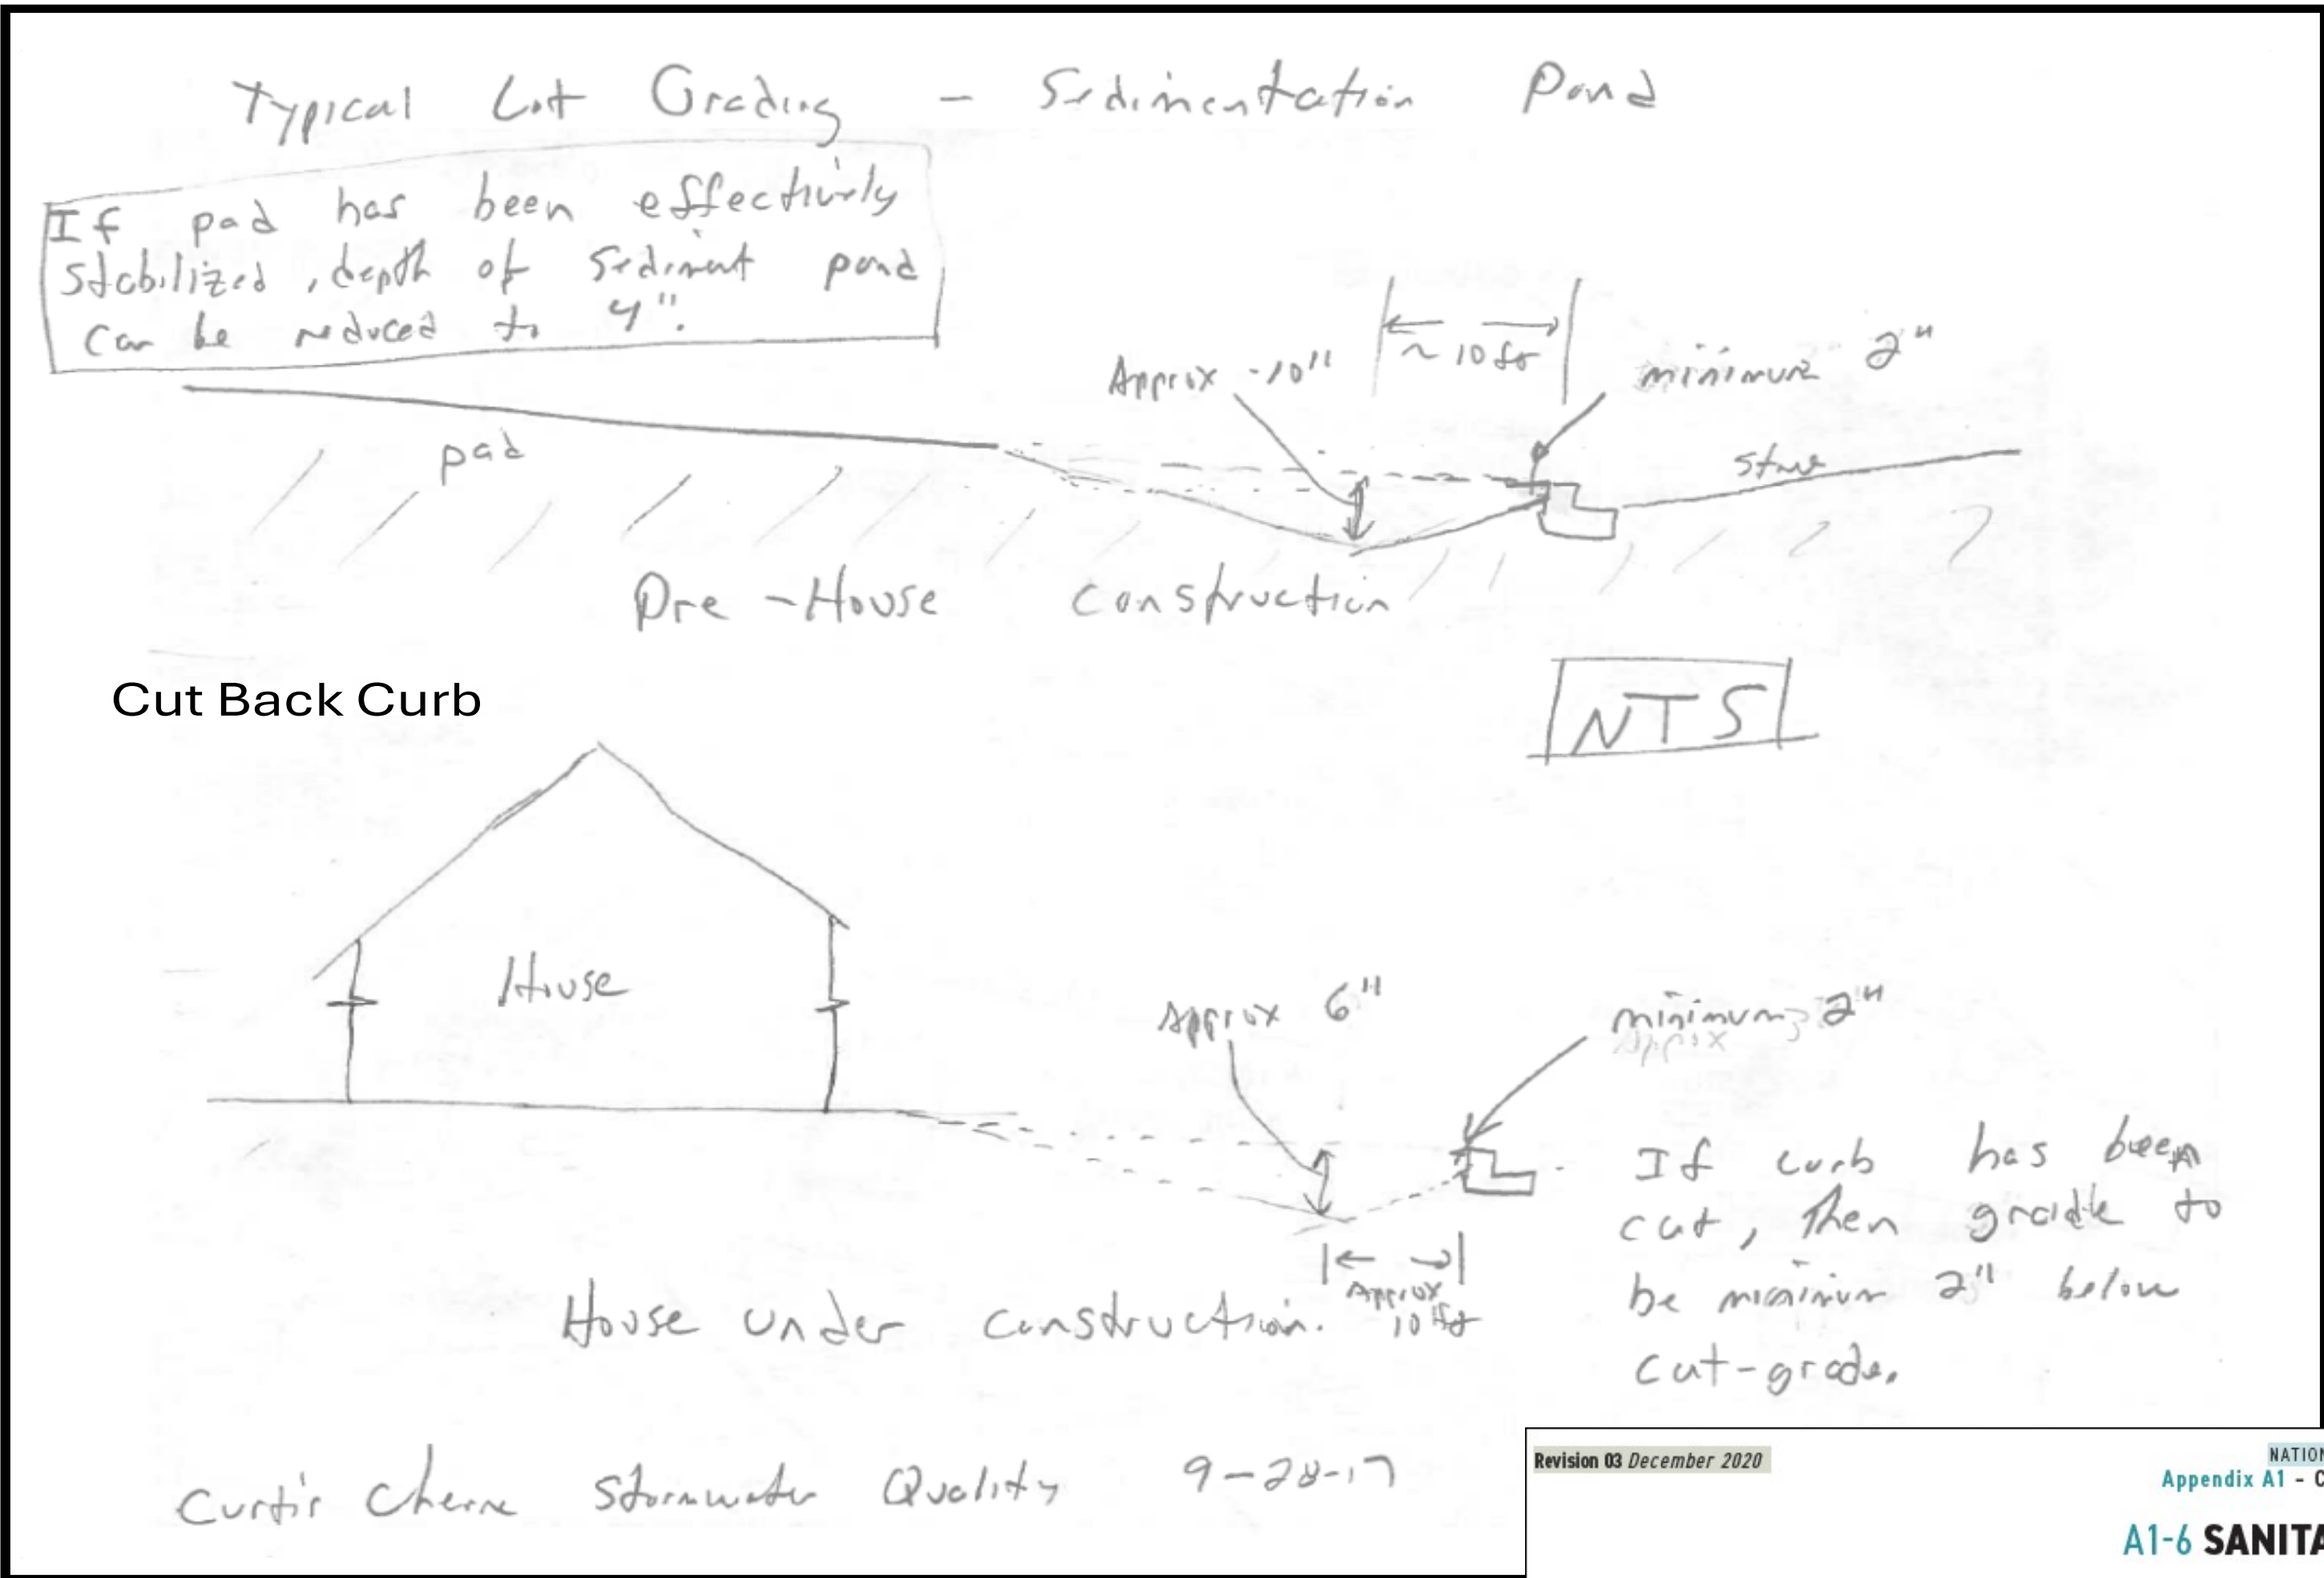 Typical Lot Grading - Sedimentation Pond
If pad has been effectively
stabilized, depth of sediment pond
can be reduced to 4".
Approx -10"
~ 10 ft
minimum 2"
pad
Pre-House Construction
Cut Back Curb
NTS
House
Approx 6"
minimum 2"
Approx
If curb has been
cut, then grade to
be minimum 2" below
cut-grade.
Approx
10 ft
House under construction.
Curtis Cherne Stormwater Quality 9-28-17
Revision 03 December 2020
NATION
Appendix A1 - C
A1-6 SANITA